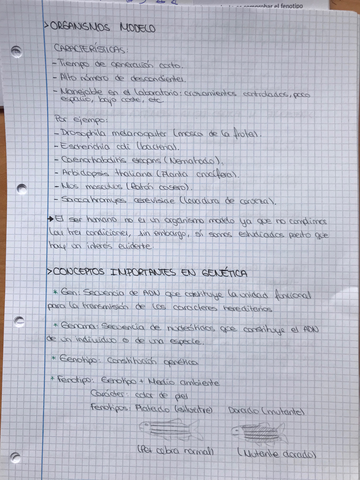 > ORGANISMOS MODELO
CARACTERÍSTICAS:
- Tiempo de generación corto.
- Alto número de descendientes.
- Manejable en el laboratorio: cruzamientos controlados, poco
espacio, bajo coste, etc.
Por ejemplo:
- Drosophila melanogaster (mosca de la fruta).
- Escherichia coli (bacteria).
- Caenorhabditis elegans (Nematodo).
- Arabidopsis thaliana (Planta crucífera).
- Mus musculus (Ratón casero).
- Saccharomyces cerevisiae (Levadura de cerveza).
→ El ser humano no es un organismo modelo ya que no cumplimos
las tres condiciones, sin embargo, sí somos estudiados puesto que
hay un interés evidente.
> CONCEPTOS IMPORTANTES EN GENÉTICA
* Gen: Secuencia de ADN que constituye la unidad funcional
para la transmisión de los caracteres hereditarios.
* Genoma: Secuencia de nucleótidos que constituye el ADN
de un individuo o de una especie.
* Genotipo: Constitución genética.
* Fenotipo: Genotipo + Medio ambiente
Carácter: color de piel
Fenotipos: Plateado (silvestre) Dorado (mutante)
(Pez cebra normal) (Mutante dorado)